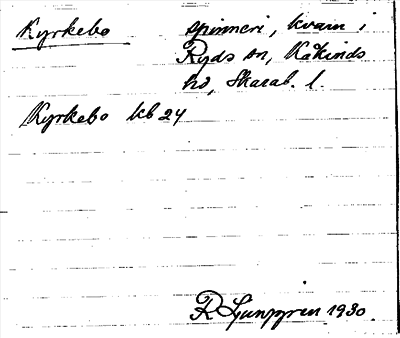 Kyrkebo spinneri, kvarn i
Ryds sn, Kåkinds
hd, Skarab. l.
Kyrkebo kb 24
R Ljunggren 1930